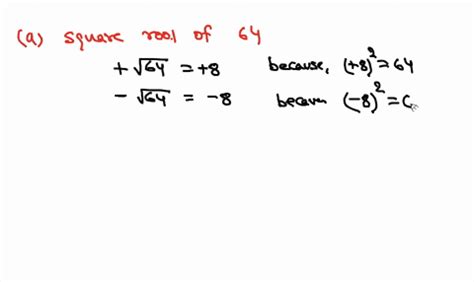 (a) square root of 64
+√64 = +8 because, (+8)² = 64
-√64 = -8 becaus (-8)² = 6